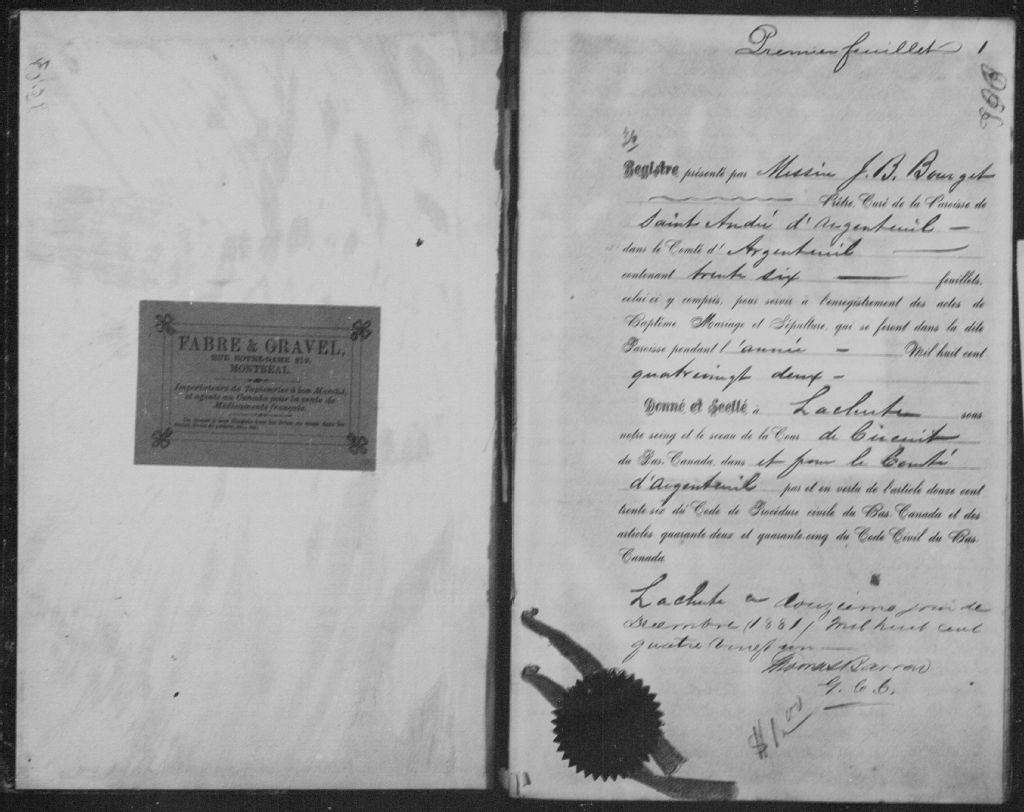 FABRE & GRAVEL,
RUE NOTRE-DAME 219,
MONTREAL.
Importateurs de Tapisseries à bon Marché,
et agents au Canada pour la vente de
Médicaments français.
Premier feuillet 1
Registre présenté par Messire J. B. Bourget
Prêtre, Curé de la Paroisse de
Saint André d'Argenteuil —
dans le Comté d' Argenteuil
contenant trente six — feuillets,
celui-ci y compris, pour servir à l'enregistrement des actes de
Baptême Mariage et Sépulture, qui se feront dans la dite
Paroisse pendant l'année — Mil huit cent
quatrevingt deux —
Donné et Scellé à Lachute sous
notre seing et le sceau de la Cour de Circuit
du Bas-Canada, dans et pour le Comté
d'Argenteuil par et en vertu de l'article douze cent
trente-six du Code de Procédure civile du Bas-Canada et des
articles quarante-deux et quarante-cinq du Code Civil du Bas-
Canada
Lachute ce douzieme jour de
Decembre (1881) Mil huit cent
quatre vingt un —
Thomas Barron
G. C. C.
$1.00